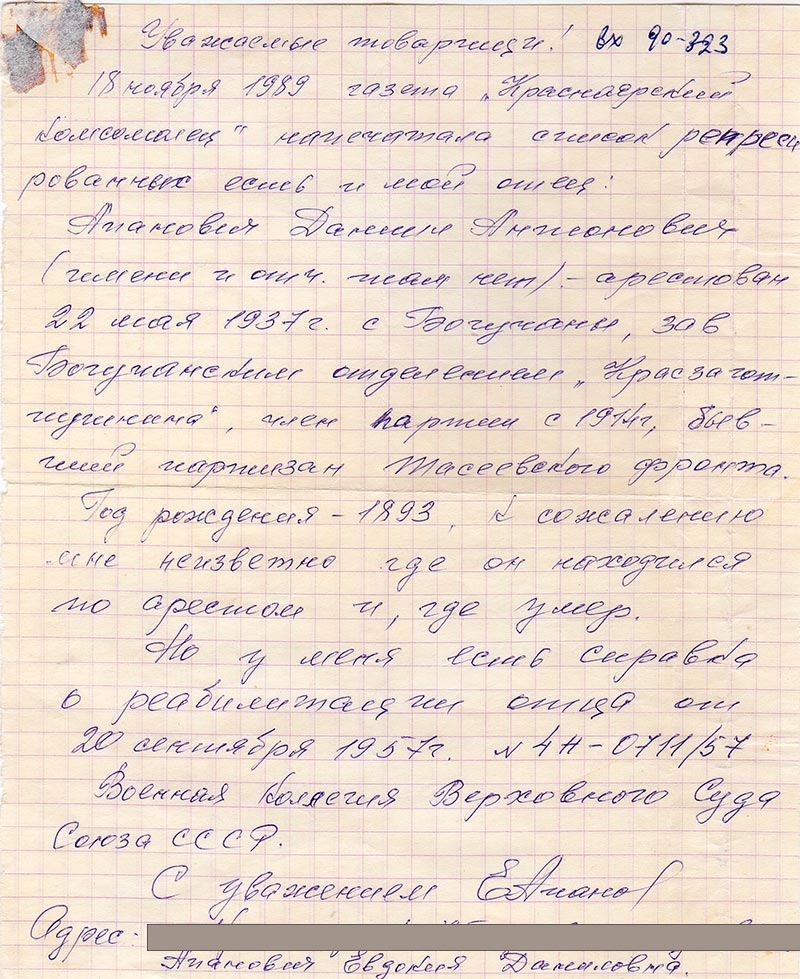 Уважаемые товарищи! вх 90-323
18 ноября 1989 газета „Красноярский
комсомолец" напечатала список репресси
рованных есть и мой отец:
Апанович Даниил Антонович
(имени и отч. там нет) - арестован
22 мая 1937г. с Богучаны, зав
Богучанским отделением „Красзагот-
пушнина", член партии с 1914г, быв-
ший партизан Тасеевского фронта.
Год рождения - 1893. К сожалению
мне неизветно где он находился
по арестом и, где умер.
Но у меня есть справка
о реабилитации отца от
20 сентября 1957г. N 4Н-0711/57
Военная Коллегия Верховного Суда
Союза СССР.
С уважением ЕАпанов
Адрес:
Апанович Евдокия Даниловна.